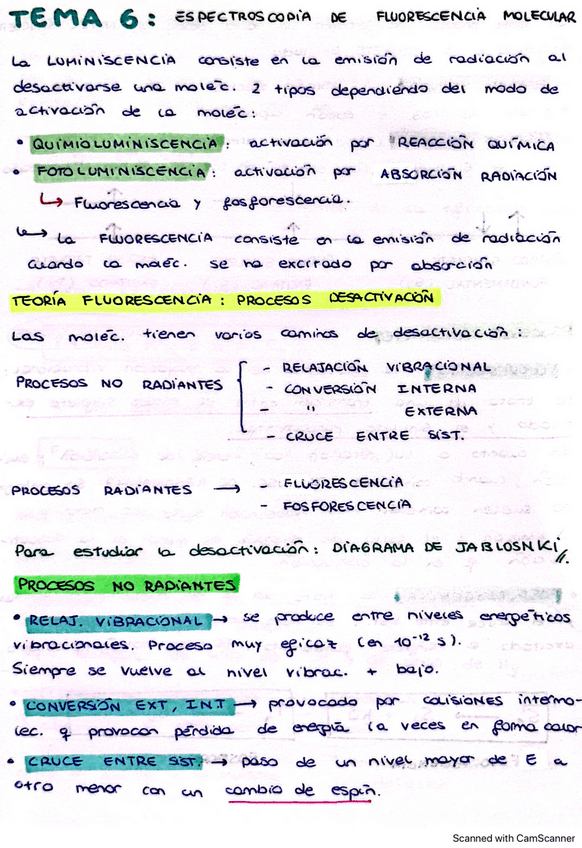 TEMA 6: ESPECTROSCOPIA DE FLUORESCENCIA MOLECULAR
La LUMINISCENCIA consiste en la emisión de radiación al
desactivarse una moléc. 2 tipos dependiendo del modo de
activación de la moléc:
• QUIMIOLUMINISCENCIA: activación por REACCIÓN QUÍMICA
• FOTOLUMINISCENCIA: activación por ABSORCIÓN RADIACIÓN
↳ Fluorescencia y fosforescencia.
↳ La FLUORESCENCIA consiste en la emisión de radiación
cuando la moléc. se ha excitado por absorción
TEORÍA FLUORESCENCIA: PROCESOS DESACTIVACIÓN
Las moléc. tienen varios caminos de desactivación:
PROCESOS NO RADIANTES
- RELAJACIÓN VIBRACIONAL
- CONVERSIÓN INTERNA
- " EXTERNA
- CRUCE ENTRE SIST.
PROCESOS RADIANTES → - FLUORESCENCIA
- FOSFORESCENCIA
Para estudiar la desactivación: DIAGRAMA DE JABLOSNKI
PROCESOS NO RADIANTES
• RELAJ. VIBRACIONAL → se produce entre niveles energéticos
vibracionales. Proceso muy eficaz (en 10⁻¹² s).
Siempre se vuelve al nivel vibrac. + bajo.
• CONVERSIÓN EXT, INT → provocado por colisiones intermo-
lec. q provocan pérdida de energía (a veces en forma calor
• CRUCE ENTRE SIST. → paso de un nivel mayor de E a
otro menor con un cambio de espín.
Scanned with CamScanner